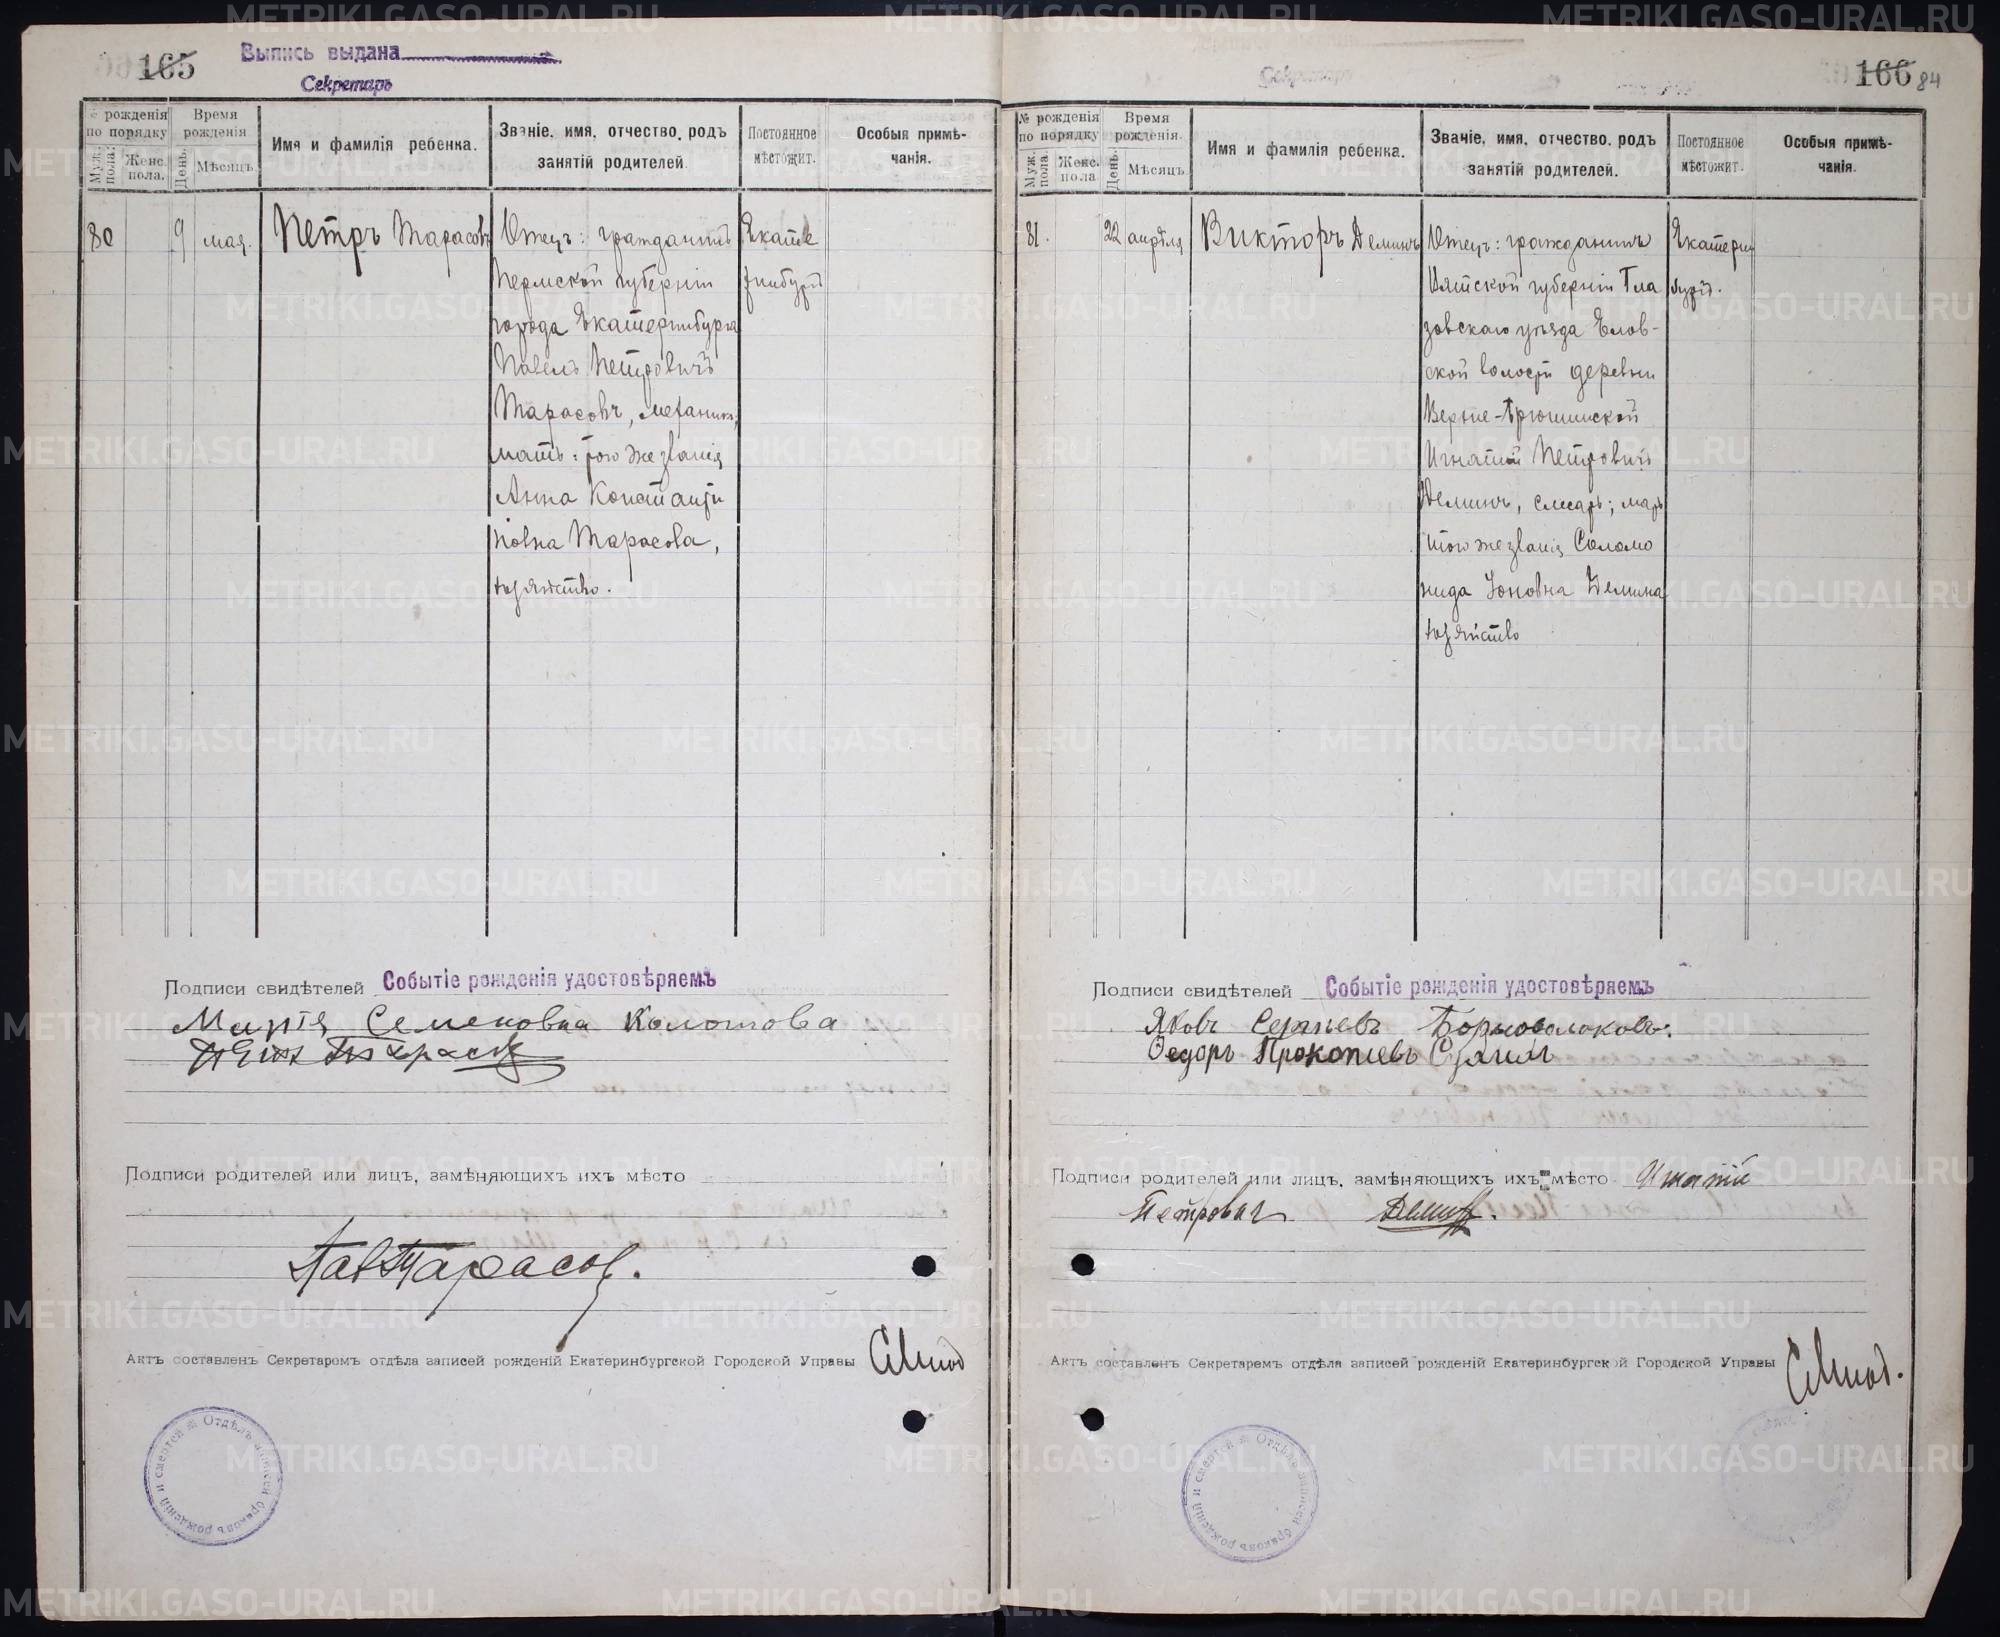 165
Выпись выдана
Секретарь
№ рожденія по порядку
Муж. пола.
Женс. пола.
Время рожденія
День.
Мѣсяцъ
Имя и фамилія ребенка.
Званіе, имя, отчество, родъ занятій родителей.
Постоянное мѣстожит.
Особыя примѣчанія.
80
9
мая.
Петръ Тарасовъ
Отецъ: гражданинъ
Пермской губерніи
города Екатеринбурга
Павелъ Петровичъ
Тарасовъ, механикъ,
мать: того же званія
Анна Константи
новна Тарасова,
хозяйство.
Екате
ринбургъ
Подписи свидѣтелей Событіе рожденія удостовѣряемъ
Марія Семеновна Колотова
Подписи родителей или лицъ, замѣняющихъ ихъ мѣсто
Пав Тарасов.
Актъ составленъ Секретаремъ отдѣла записей рожденій Екатеринбургской Городской Управы
Отдѣлъ записей браковъ рожденій и смертей
166
84
Секретарь
№ рожденія по порядку
Муж. пола.
Женс. пола
Время рожденія.
День.
Мѣсяцъ.
Имя и фамилія ребенка.
Званіе, имя, отчество, родъ занятій родителей.
Постоянное мѣстожит.
Особыя примѣчанія.
81.
22
апрѣля
Викторъ Деминъ
Отецъ: гражданинъ
Вятской губерніи Гла
зовскаго уѣзда Елов-
ской волости деревни
Верхне-
Игнатій Петровичъ
Деминъ, слесарь; мать
того же званія Соломо
нида Іоновна Демина
хозяйство
Екатерин
бургъ.
Подписи свидѣтелей Событіе рожденія удостовѣряемъ
Яковъ Сергѣевъ Борноволоковъ.
Федоръ Прокопіевъ
Подписи родителей или лицъ, замѣняющихъ ихъ мѣсто Игнатій
Петровичъ Деминъ.
Актъ составленъ Секретаремъ отдѣла записей рожденій Екатеринбургской Городской Управы
Отдѣлъ записей браковъ рожденій и смертей
METRIKI.GASO-URAL.RU